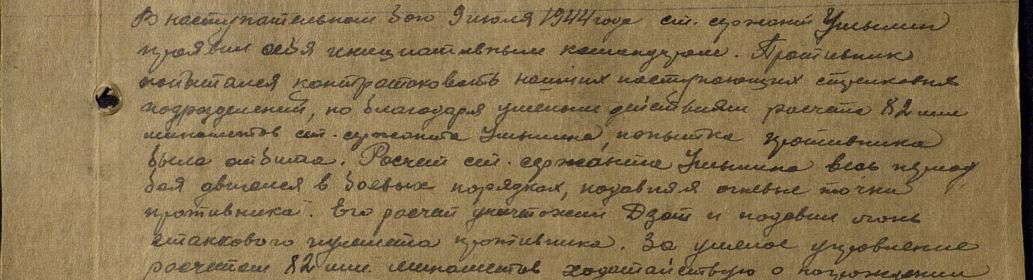 В наступательном бою 9 июля 1944 года ст. сержант
проявил себя инициативным командиром. Противник
попытался контратаковать наших наступающих стрелковых
подразделений, но благодаря умелым действиям расчета 82 мм
минометов ст. сержанта попытка противника
была отбита. Расчет ст. сержанта весь период
боя двигался в боевых порядках, подавляя огневые точки
противника. Его расчет уничтожил Дзот и подавил огонь
станкового пулемета противника. За умелое управление
расчетом 82 мм. минометов ходатайствую о награждении